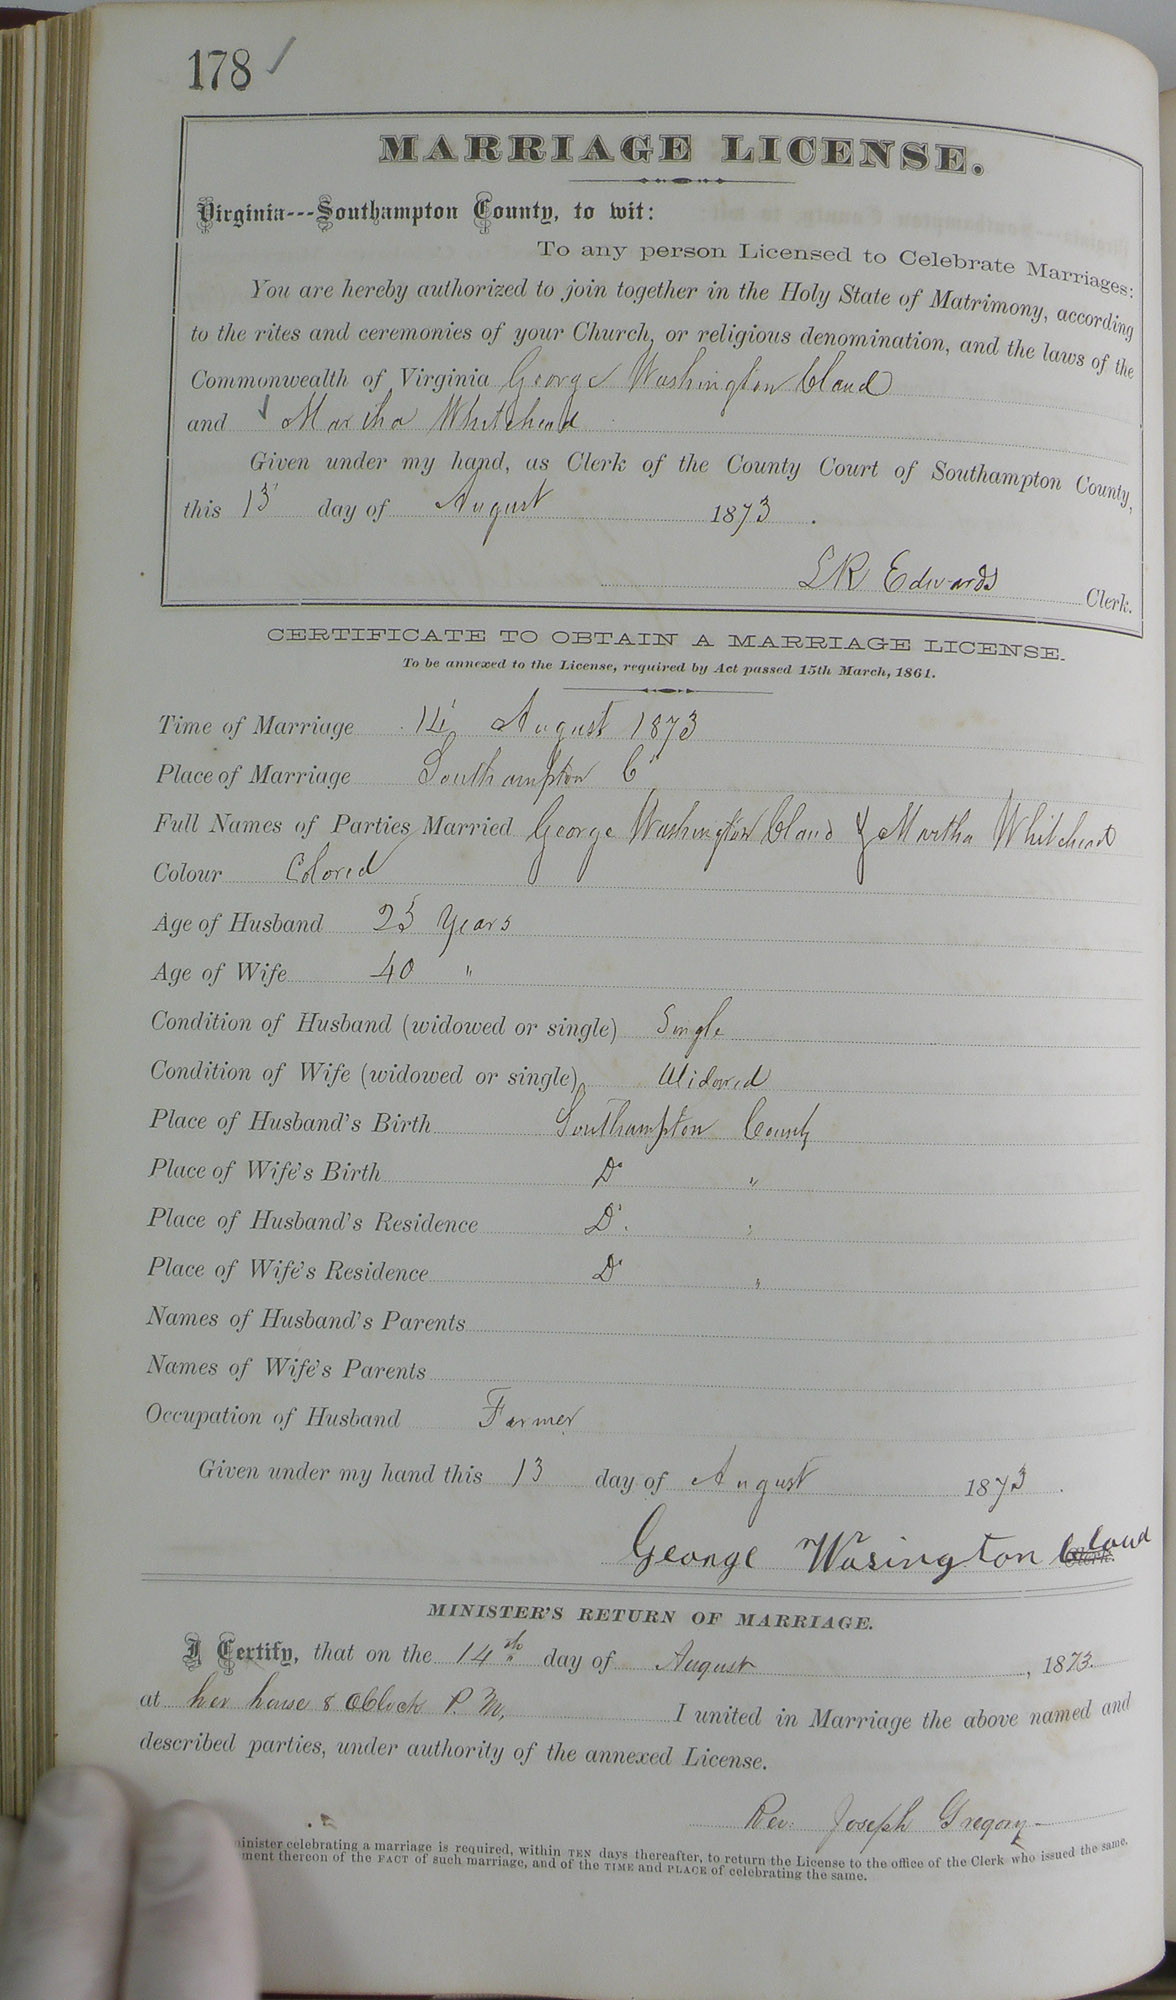 178 ✓
MARRIAGE LICENSE.
Virginia---Southampton County, to wit:
To any person Licensed to Celebrate Marriages:
You are hereby authorized to join together in the Holy State of Matrimony, according
to the rites and ceremonies of your Church, or religious denomination, and the laws of the
Commonwealth of Virginia George Washington Claud
and ✓ Martha Whitehead
Given under my hand, as Clerk of the County Court of Southampton County,
this 13 day of August 1873.
LR Edwards Clerk.
CERTIFICATE TO OBTAIN A MARRIAGE LICENSE.
To be annexed to the License, required by Act passed 15th March, 1861.
Time of Marriage 14 August 1873
Place of Marriage Southampton Co
Full Names of Parties Married George Washington Claud & Martha Whitehead
Colour Colored
Age of Husband 25 Years
Age of Wife 40 "
Condition of Husband (widowed or single) Single
Condition of Wife (widowed or single) Widowed
Place of Husband's Birth Southampton County
Place of Wife's Birth Do "
Place of Husband's Residence Do "
Place of Wife's Residence Do "
Names of Husband's Parents
Names of Wife's Parents
Occupation of Husband Farmer
Given under my hand this 13 day of August 1873.
George Wasington Claud Clerk.
MINISTER'S RETURN OF MARRIAGE.
I Certify, that on the 14th day of August, 1873.
at her house 8 Oclock P. M, I united in Marriage the above named and
described parties, under authority of the annexed License.
Rev. Joseph Gregory
inister celebrating a marriage is required, within TEN days thereafter, to return the License to the office of the Clerk who issued the same,
ment thereon of the FACT of such marriage, and of the TIME and PLACE of celebrating the same.